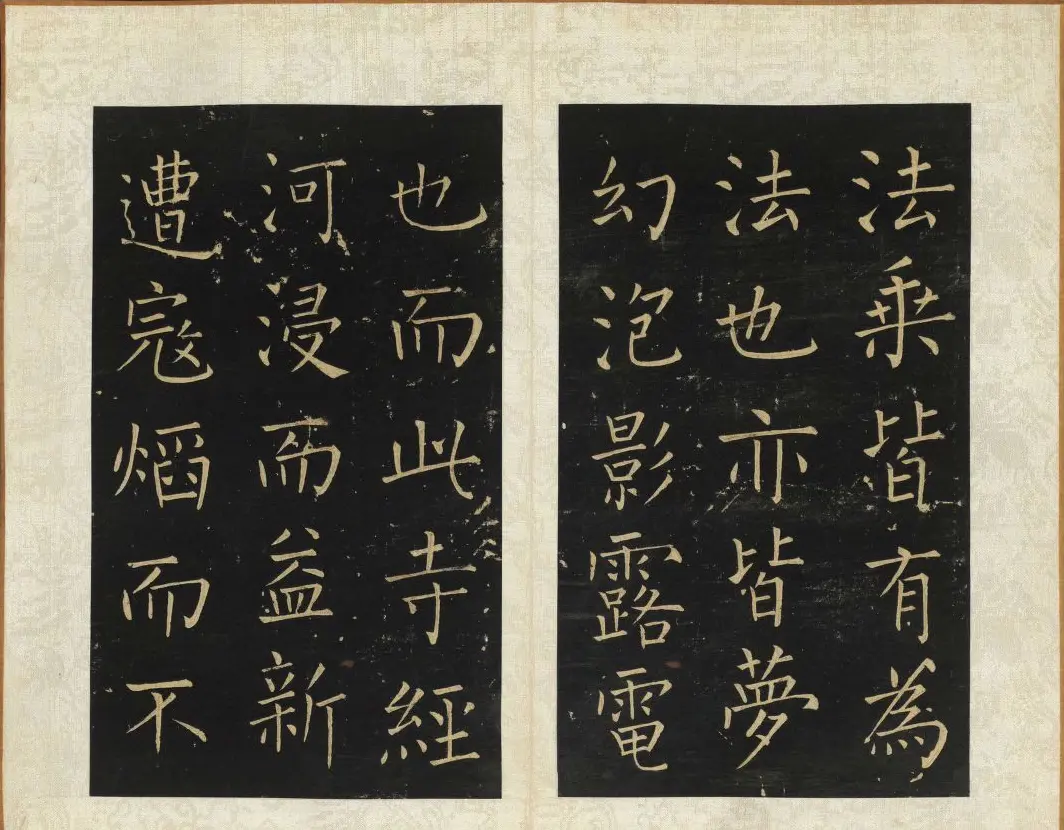 法乗皆有為
法也亦皆夢
幻泡影露電
也而此寺經
河浸而益新
遭寇熖而不